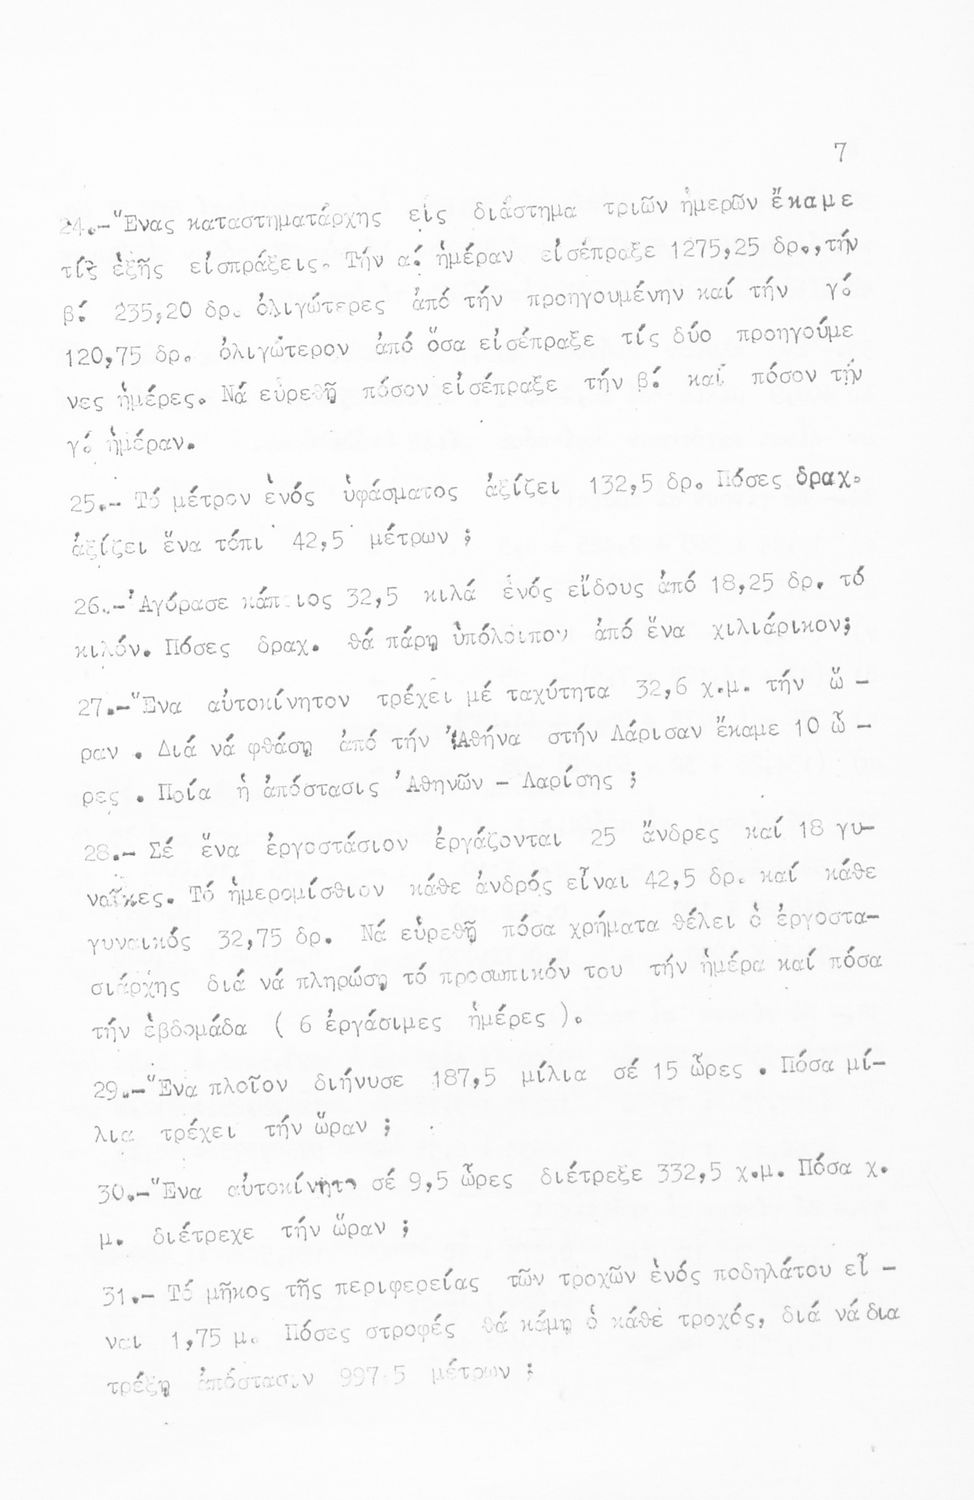 7
24.-"Ενας καταστηματάρχης εἰς διάστημα τριῶν ἡμερῶν ἔκαμε
τίς ἑξῆς εἰσπράξεις. Τήν α΄ ἡμέραν εἰσέπραξε 1275,25 δρ.,τήν
β΄ 235,20 δρ. ὀλιγώτερες ἀπό τήν προηγουμένην καί τήν γ΄
120,75 δρ. ὀλιγώτερον ἀπό ὅσα εἰσέπραξε τίς δύο προηγούμε
νες ἡμέρες. Νά εὑρεθῇ πόσον εἰσέπραξε τήν β΄ καί πόσον τήν
γ΄ ἡμέραν.
25.- Τό μέτρον ἑνός ὑφάσματος ἀξίζει 132,5 δρ. Πόσες δραχ.
ἀξίζει ἕνα τόπι 42,5 μέτρων ;
26.-'Αγόρασε κάποιος 32,5 κιλά ἑνός εἴδους ἀπό 18,25 δρ. τό
κιλόν. Πόσες δραχ. θά πάρῃ ὑπόλοιπον ἀπό ἕνα χιλιάρικον;
27.-"Ενα αὐτοκίνητον τρέχει μέ ταχύτητα 32,6 χ.μ. τήν ὥ -
ραν . Διά νά φθάσῃ ἀπό τήν 'Αθήνα στήν Λάρισαν ἔκαμε 10 ὧ -
ρες . Ποία ἡ ἀπόστασις 'Αθηνῶν - Λαρίσης ;
28.- Σέ ἕνα ἐργοστάσιον ἐργάζονται 25 ἄνδρες καί 18 γυ-
ναῖκες. Τό ἡμερομίσθιον κάθε ἀνδρός εἶναι 42,5 δρ. καί κάθε
γυναικός 32,75 δρ. Νά εὑρεθῇ πόσα χρήματα θέλει ὁ ἐργοστα-
σιάρχης διά νά πληρώσῃ τό προσωπικόν του τήν ἡμέρα καί πόσα
τήν ἑβδομάδα ( 6 ἐργάσιμες ἡμέρες ).
29.-"Ενα πλοῖον διήνυσε 187,5 μίλια σέ 15 ὧρες . Πόσα μί-
λια τρέχει τήν ὥραν ;
30.-"Ενα αὐτοκίνητο σέ 9,5 ὧρες διέτρεξε 332,5 χ.μ. Πόσα χ.
μ. διέτρεχε τήν ὥραν ;
31.- Τό μῆκος τῆς περιφερείας τῶν τροχῶν ἑνός ποδηλάτου εἶ -
ναι 1,75 μ. Πόσες στροφές θά κάμῃ ὁ κάθε τροχός, διά νά δια
τρέξῃ ἀπόστασιν 997,5 μέτρων ;